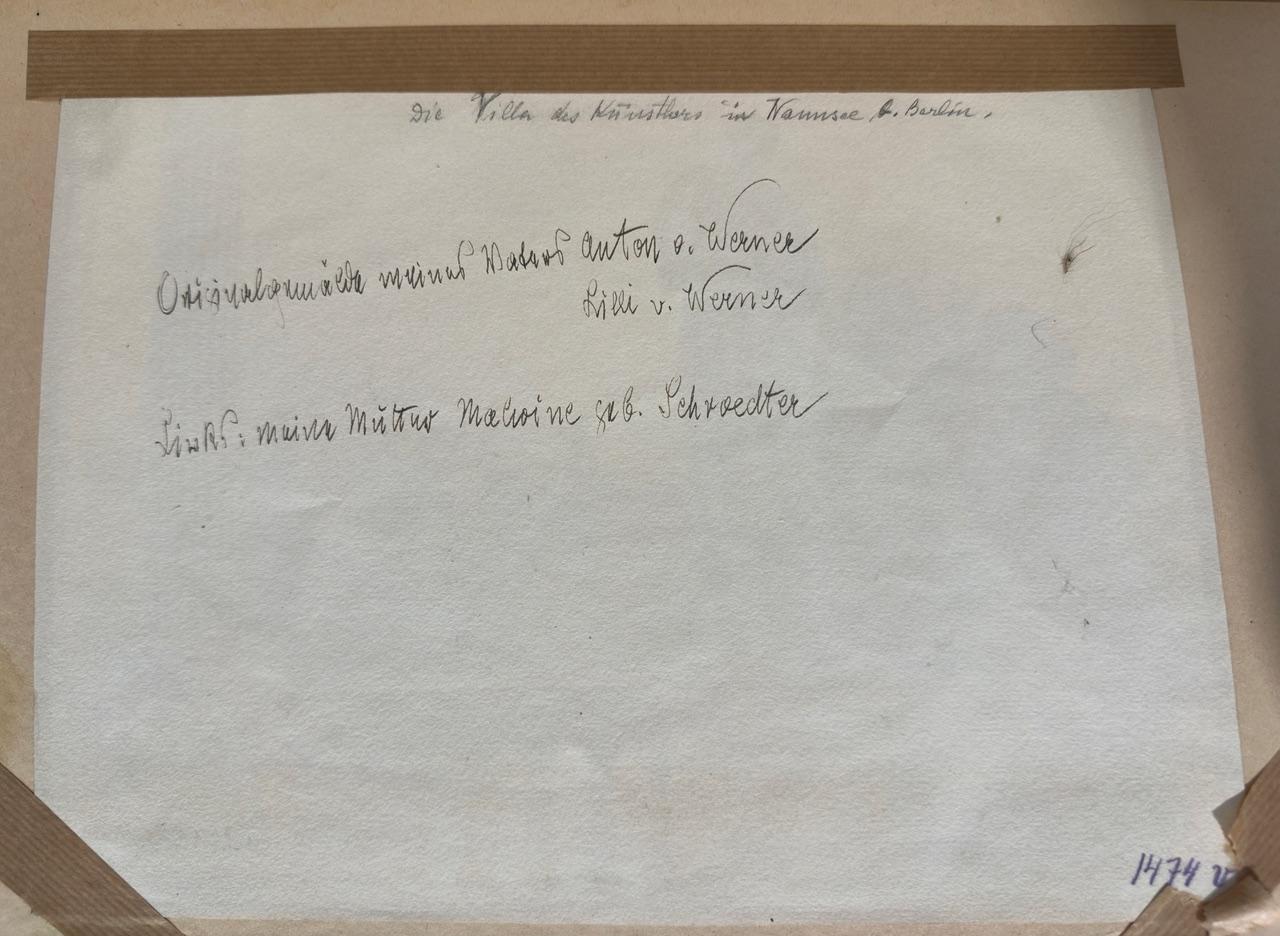 Die Villa des Künstlers in Wannsee b. Berlin.
Originalgemälde meines Vaters Anton v. Werner
Lilli v. Werner
Links: meine Mutter Malwine geb. Schroedter
1474